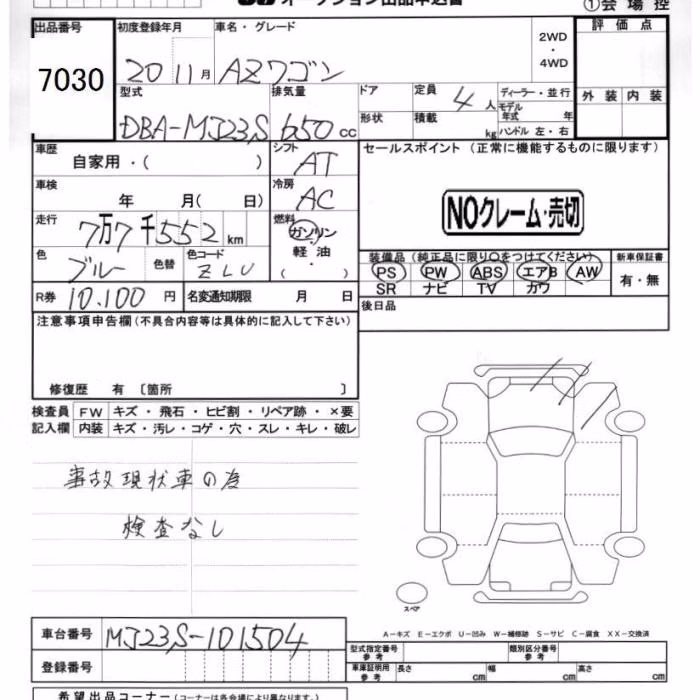 オークション出品申込書
①会場控
出品番号 初度登録年月 車名・グレード 2WD ・ 4WD 評価点
7030 20 11月 AZワゴン
外装 内装
型式 排気量 ドア 定員 4人 ディーラー・並行
DBA-MJ23S 650cc 形状 積載 kg モデル年式 年
ハンドル 左・右
車歴 自家用・( ) シフト AT セールスポイント (正常に機能するものに限ります)
車検 年 月( 日) 冷房 AC
NOクレーム・売切
走行 7万7千552km 燃料 ガソリン
軽油
・( )
色 ブルー 色替 色コード ZLU
装備品(純正品に限り○をつけてください) 新車保証書
PS PW ABS エアB AW 有・無
SR ナビ TV カワ
R券 10.100円 名変通知期限 月 日 後日品
注意事項申告欄(不具合内容等は具体的に記入して下さい)
修復歴 有 〔箇所 〕
検査員 FW キズ・飛石・ヒビ割・リペア跡・×要
記入欄 内装 キズ・汚レ・コゲ・穴・スレ・キレ・破レ
事故現状車の為
検査なし
スペア
A-キズ E-エクボ U-凹み W-補修跡 S-サビ C-腐食 XX-交換済
車台番号 MJ23S-101504 型式指定番号 参考 類別区分番号 参考
登録番号 車庫証明用 参考 長さ cm 幅 cm 高さ cm
希望出品コーナー(コーナーは各会場により異なります。)